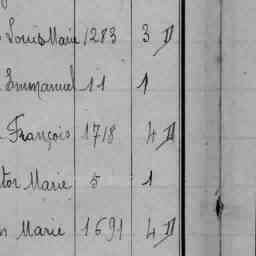 Louis Marie 1283 3 D
Emmanuel 11 1
François 1718 4 D
tor Marie 5 1
Marie 1691 4 D